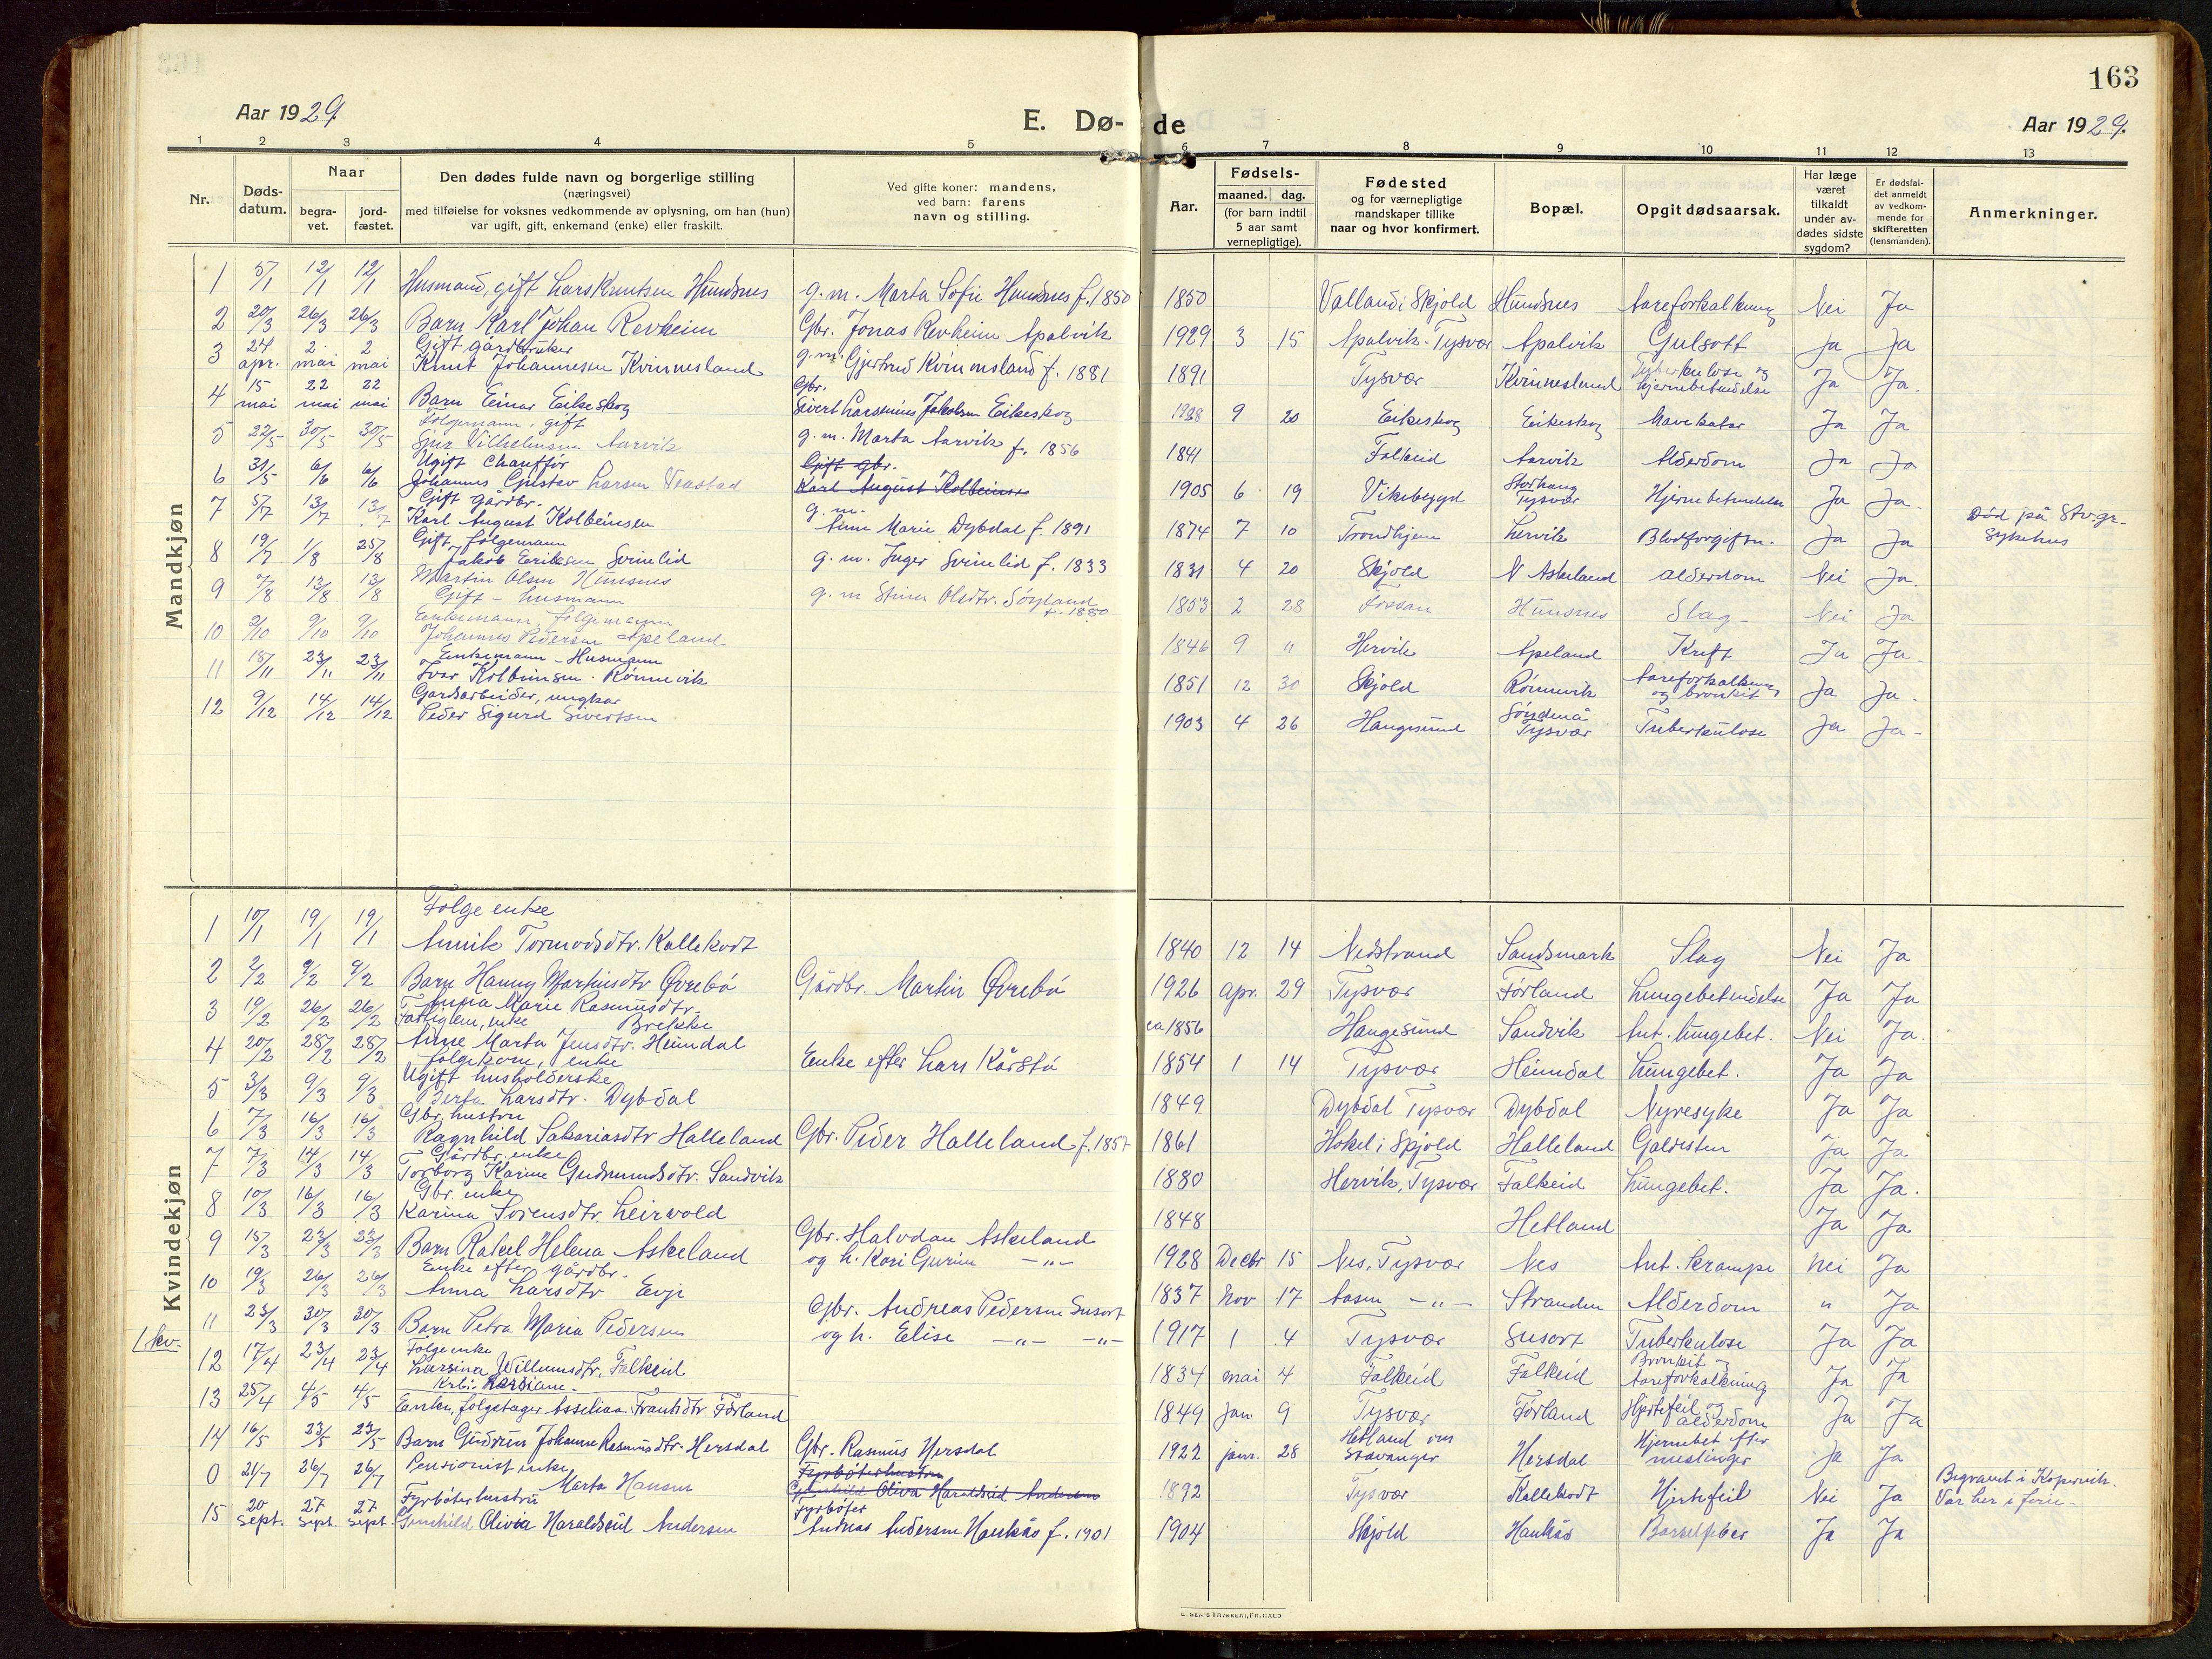 163
Aar 1929
E. Dø-de
Aar 1929.
1 2 3 4 5 6 7 8 9 10 11 12 13
Nr.
Døds-datum.
Naar
begra-vet.
jord-fæstet.
Den dødes fulde navn og borgerlige stilling
(næringsvei)
med tilføielse for voksnes vedkommende av oplysning, om han (hun)
var ugift, gift, enkemand (enke) eller fraskilt.
Ved gifte koner: mandens,
ved barn: farens
navn og stilling.
Aar.
Fødsels-
maaned. dag.
(for barn indtil
5 aar samt
vernepligtige).
Fødested
og for værnepligtige
mandskaper tillike
naar og hvor konfirmert.
Bopæl.
Opgit dødsaarsak.
Har læge
været
tilkaldt
under av-
dødes sidste
sygdom?
Er dødsfal-
det anmeldt
av vedkom-
mende for
skifteretten
(lensmanden).
Anmerkninger.
Mandkjøn
1 5/1 12/1 12/1 Husmand, gift Lars Knutsen Hundsnes g. m. Marta Sofie Hundsnes f. 1850 1850 Valland i Skjold Hundsnes Aareforkalkning Nei Ja
2 20/3 26/3 26/3 Barn Karl Johan Revheim Gbr. Jonas Revheim Apalvik 1929 3 15 Apalvik-Tysvær Apalvik Gulsott Ja Ja
3 24 apr. 2 mai 2 mai Gift gårdbruker
Knut Johannesen Kvinnesland g.m. Gjertrud Kvinnesland f. 1881 1891 Tysvær Kvinnesland Tuberkulose og hjernebetendelse Ja Ja.
4 15 mai 22 mai 22 mai Barn Einar Eikeskog Gbr. Sivert Larsinius Jakobsen Eikeskog 1928 9 20 Eikeskog Eikeskog Mavekatar Ja Ja
5 22/5 30/5 30/5 Følgemann, gift
Sjur Vilhelmsen Aarvik g. m. Marta Aarvik f. 1856 1841 Falkeid Aarvik Alderdom Ja Ja
6 31/5 6/6 6/6 Ugift Chauffør
Johannes Gustav Larsen Veastad Gift gbr. Karl August Kolbeinsen 1905 6 19 Vikebygd Storhaug Tysvær Hjernebetendelse Ja Ja
7 5/7 13/7 13/7 Gift gårdbr.
Karl August Kolbeinsen g. m. Anne Marie Dybdal f. 1891 1874 7 10 Trondhjem Hervik Blodforgiftn. Ja Ja Død på Stv.gr. Sykehus
8 19/7 1/8 25/8 Gift, følgemann
Jakob Eriksen Svinelid g. m. Inger Svinelid f. 1833 1831 4 20 Skjold N Askeland Alderdom Nei Ja.
9 7/8 13/8 13/8 Martin Olsen Hunsnes
Gift - husmann g. m Stina Olsdtr. Søyland f. 1850 1853 2 28 Fossan Hunsnes Slag - Nei Ja
10 2/10 9/10 9/10 Enkemann, følgemann
Johannes Pedersen Apeland 1846 9 " Hervik Apeland Kreft Ja Ja
11 15/11 23/11 23/11 Enkemann - Husmann
Ivar Kolbeinsen Rønnevik 1851 12 30 Skjold Rønnevik Aareforkalkning og bronkit Ja Ja.
12 9/12 14/12 14/12 Gardsarbeider, ungkar
Peder Sigurd Sivertsen 1903 4 26 Haugesund Tysvær Tuberkulose Ja Ja-
Kvindekjøn
1 10/1 19/1 19/1 Følge enke
Annik Tormodsdtr. Kallekodt 1840 12 14 Nedstrand Sandsmark Slag Nei Ja
2 2/2 9/2 9/2 Barn Hanny Martinsdtr Øvrebø Gårdbr. Martin Øvrebø 1926 Apr. 29 Tysvær Førland Lungebetendelse Ja Ja
3 19/2 26/2 26/2 Anna Marie Rasmusdtr.
Fattiglem, enke Brekke ca 1856 Haugesund Sandvik Ant. lungebet. Nei Ja.
4 20/2 28/2 28/2 Anne Marta Jensdtr. Heimdal
følgekone, enke Enke efter Lars Kårstø 1854 1 14 Tysvær Heimdal Lungebet. Ja Ja
5 3/3 9/3 9/3 Ugift husholderske
Berta Larsdtr. Dybdal 1849 Dybdal Tysvær Dybdal Nyresyke Ja Ja
6 7/3 16/3 16/3 Gbr. hustru
Ragnhild Sakariasdtr Halleland Gbr. Peder Halleland f. 1857 1861 Hokel i Skjold Halleland Galdesten Ja Ja
7 7/3 14/3 14/3 Gårdbr. enke
Torborg Karine Gudmundsdtr. Sandvik 1880 Hervik, Tysvær Falkeid Lungebet. Ja Ja.
8 10/3 16/3 16/3 Gbr. enke
Karina Sørensdtr. Leirvold 1848 Hetland Ja Ja
9 15/3 23/3 23/3 Barn Rakel Helena Askeland Gbr. Halvdan Askeland
og h. Kari Gurine -"- 1928 Decbr 15 Nes, Tysvær Nes Ant. krampe Nei Ja
10 19/3 26/3 26/3 Enke efter gårdbr.
Anna Larsdtr Evje 1837 Nov 17 Aasen -"- Stranden Alderdom " Ja
11 23/3 30/3 30/3 Barn Petra Maria Pedersen Gbr. Andreas Pedersen Susort
og h. Elise -"- -"- 1917 1 4 Tysvær Susort Tuberkulose Ja Ja
1 kv.
12 17/4 23/4 23/4 Følge enke
Larsina Willumsdtr. Falkeid 1834 mai 4 Falkeid Falkeid Bronkit og Aareforkalkning Ja Ja
13 25/4 4/5 4/5 Enke, følgetager Asseliaa Frantsdtr Førland 1849 Jan. 9 Tysvær Førland Hjertefeil og alderdom Ja Ja
14 16/5 23/5 23/5 Barn Gudrun Johanne Rasmusdtr. Hersdal Gbr. Rasmus Hersdal 1922 janr. 28 Hetland om Stavanger Hersdal Hjernebet efter meslinger Ja Ja
0 21/7 26/7 26/7 Pensionist enke
Marta Hansen Fyrbøterhustru Gunhild Oliva Haraldseid Andersen 1892 Tysvær Kallekodt Hjertefeil Nei Ja Begravet i Kopervik. Var her i ferie-
15 20 Sept. 27 Sept. 27 Sept. Fyrbøterhustru
Gunhild Olivia Haraldseid Andersen Fyrbøter
Andreas Andersen Haukås f. 1901 1904 Skjold Haukås Barselfeber Ja Ja